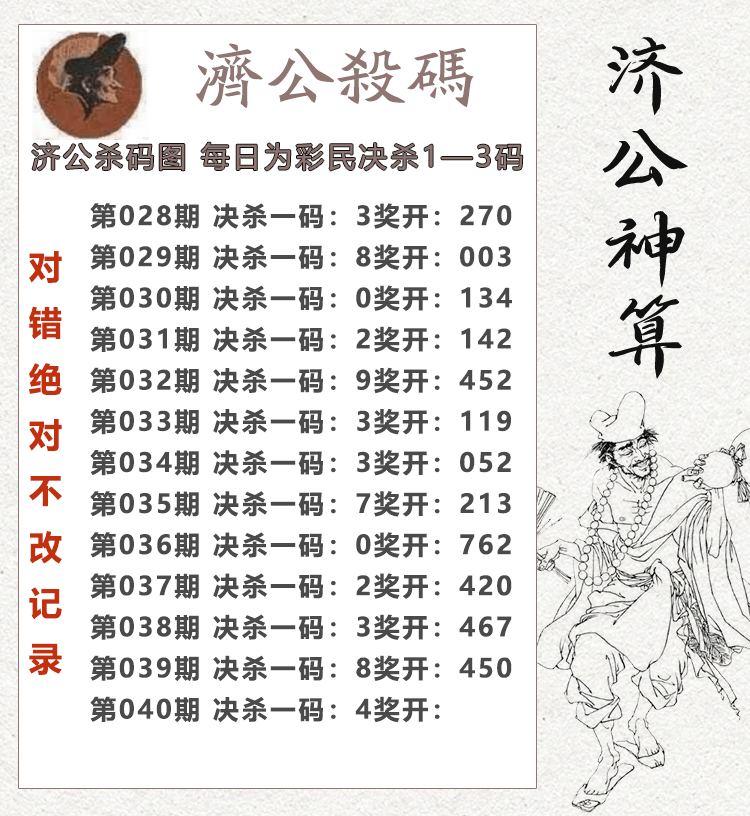 濟公殺碼
济公杀码图 每日为彩民决杀1—3码
第028期 决杀一码：3奖开：270
第029期 决杀一码：8奖开：003
第030期 决杀一码：0奖开：134
第031期 决杀一码：2奖开：142
第032期 决杀一码：9奖开：452
第033期 决杀一码：3奖开：119
第034期 决杀一码：3奖开：052
第035期 决杀一码：7奖开：213
第036期 决杀一码：0奖开：762
第037期 决杀一码：2奖开：420
第038期 决杀一码：3奖开：467
第039期 决杀一码：8奖开：450
第040期 决杀一码：4奖开：
对错绝对不改记录
济公神算